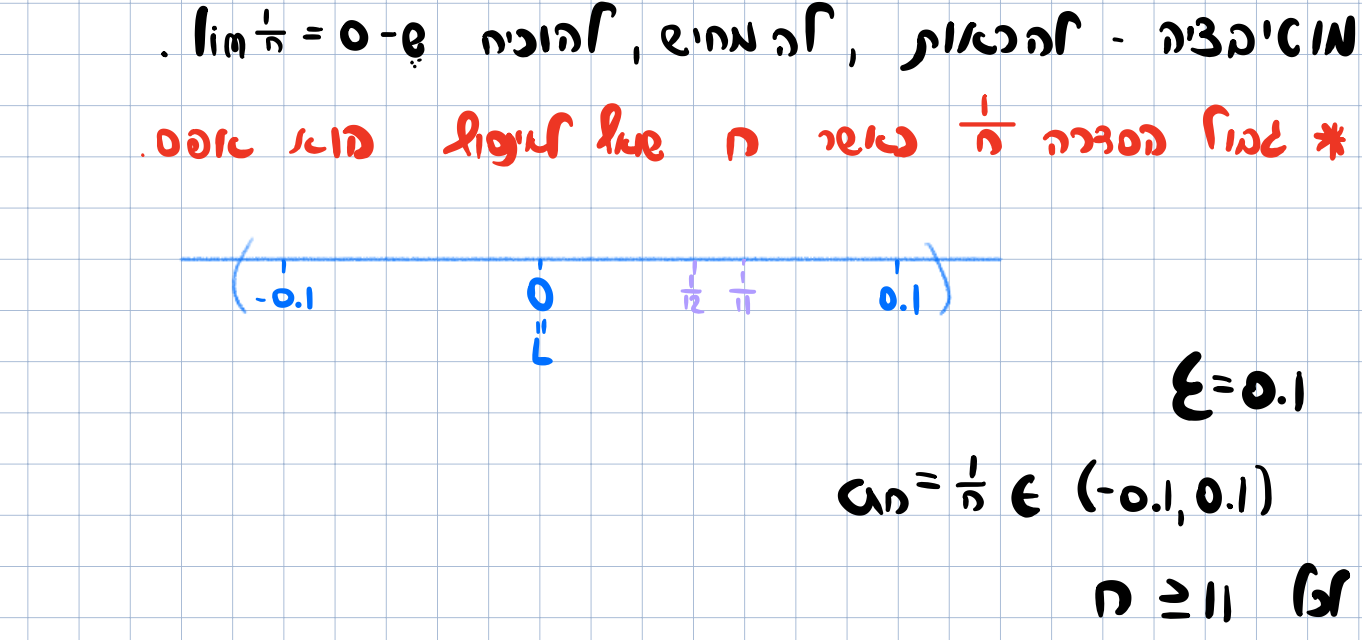 מוטיבציה - להראות, להמחיש, להוכיח ש- lim 1/n = 0.
* גבול הסדרה 1/n כאשר n שואף לאינסוף הוא אפס.
-0.1 0 1/12 1/11 0.1
=
L
ε=0.1
an = 1/n ∈ (-0.1, 0.1)
לכל n ≥ 11